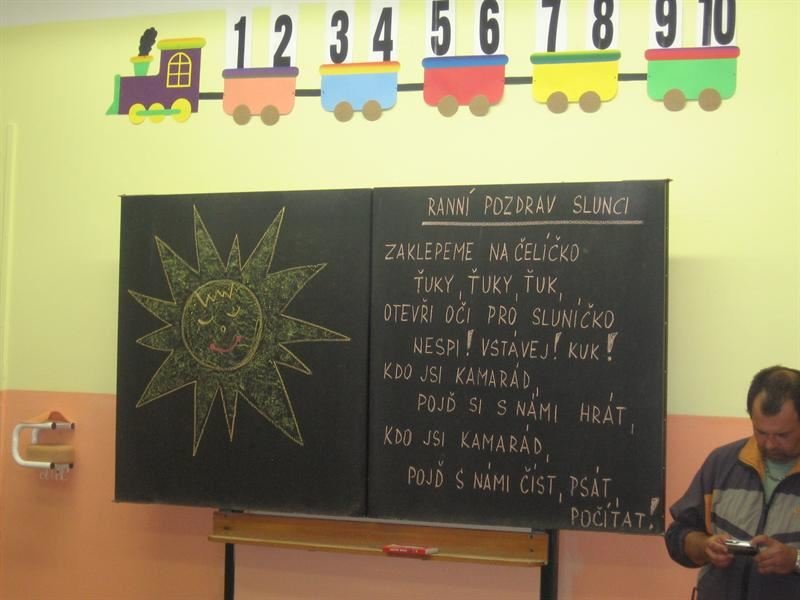 1 2 3 4 5 6 7 8 9 10
RANNÍ POZDRAV SLUNCI
ZAKLEPEME NA ČELÍČKO
ŤUKY, ŤUKY, ŤUK,
OTEVŘI OČI PRO SLUNÍČKO
NESPI! VSTÁVEJ! KUK!
KDO JSI KAMARÁD,
POJĎ SI S NÁMI HRÁT,
KDO JSI KAMARÁD,
POJĎ S NÁMI ČÍST, PSÁT,
POČÍTAT!